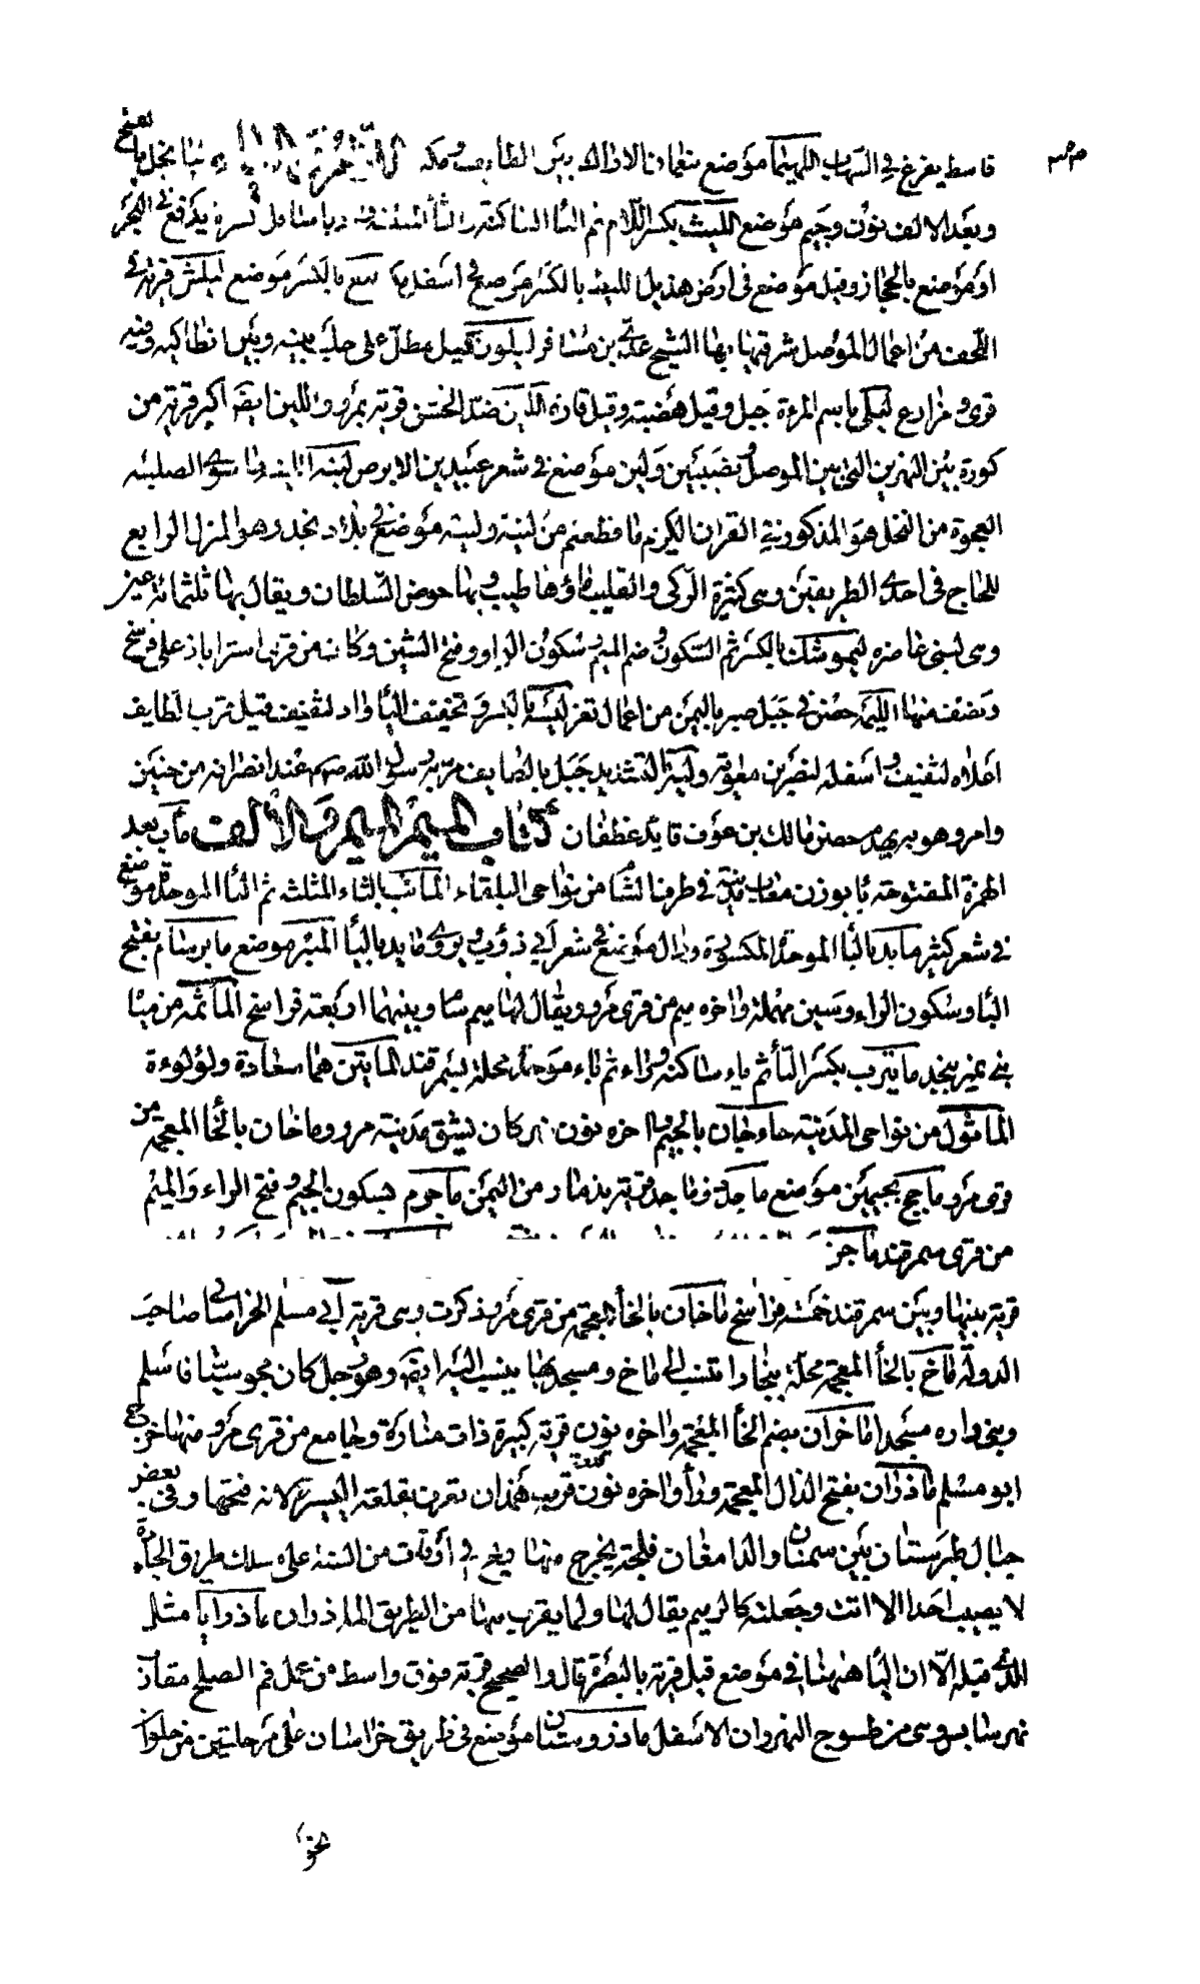 قاسط يفرغ في السهاب اللهيماء موضع بنعمان الاراك بين الطايف ومكه اللام والياء بفتح
وبعد الالف نون وجيم موضع الليث بكسر اللام ثم الياء الساكنة والثاء المثلثة واد بأسفل السراة يدفع في البحر
او موضع بالحجاز وقيل موضع في ارض هذيل بالكسر موضع في اسفل بالكسر موضع ليلش قرية في
اللحف من اعمال الموصل شرقيها بها الشيخ عدي بن مسافر ليلون جبل مطل على حلب بينه وبين انطاكيه وفيه
قرى ومزارع ليلى باسم المرءة جبل وقيل هضبة وقيل قارة اللين ضد الخشن قرية بمرو واللين ايضا اكبر قرية من
كورة بين النهرين التي بين الموصل ونصيبين ولين موضع في شعر عبيد بن الابرص لينه
العجوة من النخل هو المذكور في القران الكريم ما قطعتم من لينة ولينه موضع في بلاد نجد وهو المنزل الرابع
للحاج في احدى الطريقين وهي كثيرة الركى والقليب ماؤها طيب وبها حوض السلطان ويقال بها ثلثمائة عين
وهي لبني غاضره ليموشك بالكسر ثم السكون وضم الميم وسكون الواو وفتح الشين وكاف من قرى استراباذ على فرسخ
ونصف منها الليمه حصن في جبل صبر باليمن من اعمال تعز ليه بالكسر وتخفيف الياء واد لثقيف قبل قرب الطايف
اعلاه لثقيف واسفله لنصر بن معوية ولية بالتشديد جبل بالطايف مر به رسول الله صلعم عند انصرافه من حنين
وامر وهو به بهدم حصن مالك بن عوف قايد غطفان كتاب الميم الميم والالف مآب بعد
الهمزة المفتوحه با بوزن معاب مدينة في طرف الشام من نواحي البلقاء المآثب بالثاء المثلثه ثم الباء الموحدة موضع
في شعر كثير مابد بالباء الموحدة المكسورة ودال موضع في شعر ابي ذؤيب ويروى مايد بالياء المبرّ موضع مابرسام بفتح
الباء وسكون الراء وسين مهملة واخره ميم من قرى مرو ويقال لها ميم سام وبينهما اربعة فراسخ المأثمة من مياه
بني نمير بنجد ماتيرب بكسر التاء ثم ياء ساكنة وراء ثم باء موحدة محلة بسمرقند المايتين هما سعادة ولؤلوءة
المأثول من نواحي المدينه ماجان بالجيم واخره نون نهر كان يشق مدينة مرو وماخان بالخاء المعجمه من
قرى مرو ماجج بجيمين موضع ماجدة وماجدة قرية بذمار من اليمن ماجرم بسكون الجيم وفتح الراء والميم
من قرى سمرقند ماجن
قرية بينها وبين سمرقند خمسة فراسخ ماخان بالخاء المعجمه من قرى مرو ذكرت وهي قرية ابي مسلم الخراساني صاحب
الدولة ماخ بالخاء المعجمة محلة ببخارا تنسب الى ماخ ومسجد بها ينسب اليه ايضا وهو رجل كان مجوسيا فاسلم
وبنى داره مسجدا ماخوان بضم الخاء المعجمة واخره نون قرية كبيرة ذات منارة وجامع من قرى مرو منها خرج
ابو مسلم ماذران بفتح الذال المعجمة وراء واخره نون قلعة قرب همذان تعرف بقلعة اليسير لانه فتحها وفي بعض
جبال طبرستان بين سمنان والدامغان فلجة يخرج منها ريح في اوقات من السنة على من سلك طريق الجادة
لا يصيب احدا الا اتت وجعلته كالرميم يقال لها ولما يقرب منها من الطريق الماذران ماذرايا مثل
الذي قبله الا ان الياء ههنا في موضع قيل قرية بالبصرة قال والصحيح قرية فوق واسط من عمل فم الصلح مقابل
نهر سابس وهي من طسوج النهروان الاسفل ماذروستان موضع في طريق خراسان على مرحلتين من حلوان
نحو